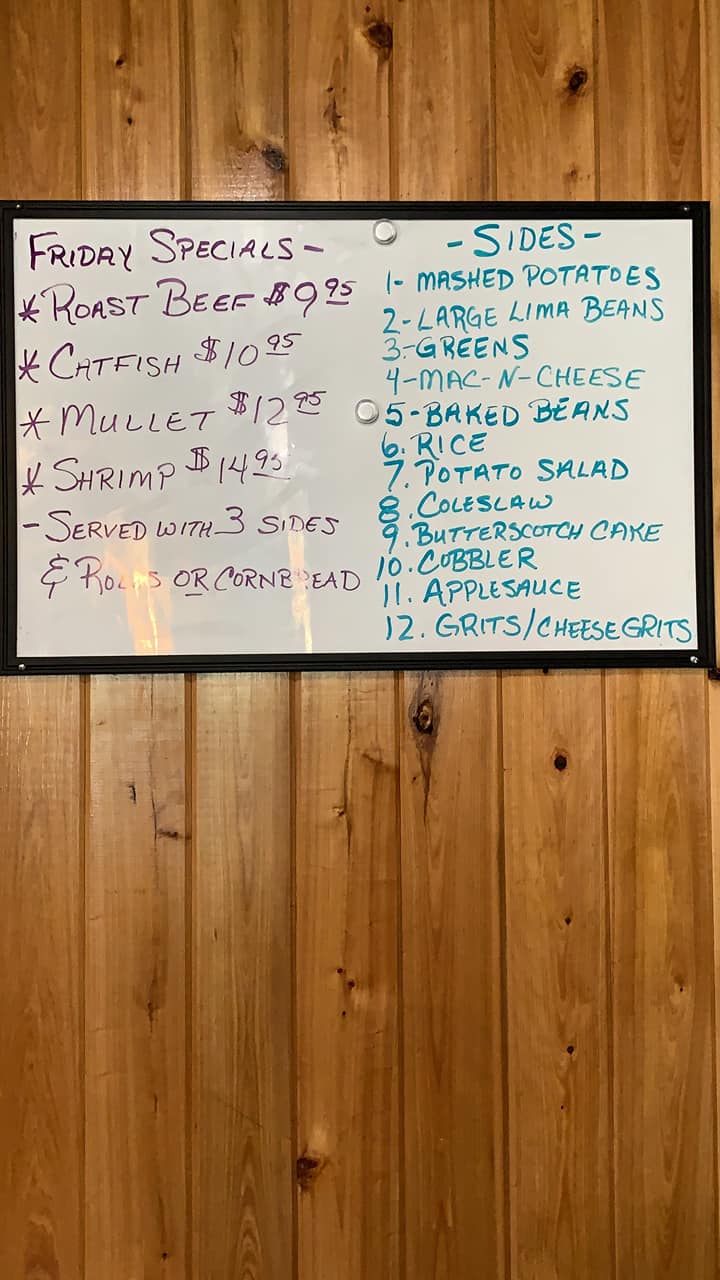 FRIDAY SPECIALS-
* ROAST BEEF $9.95
* CATFISH $10.95
* MULLET $12.95
* SHRIMP $14.95
- SERVED WITH 3 SIDES
& ROLLS OR CORNBREAD
- SIDES -
1- MASHED POTATOES
2- LARGE LIMA BEANS
3- GREENS
4- MAC-N-CHEESE
5- BAKED BEANS
6. RICE
7. POTATO SALAD
8. COLESLAW
9. BUTTERSCOTCH CAKE
10. COBBLER
11. APPLESAUCE
12. GRITS/CHEESE GRITS